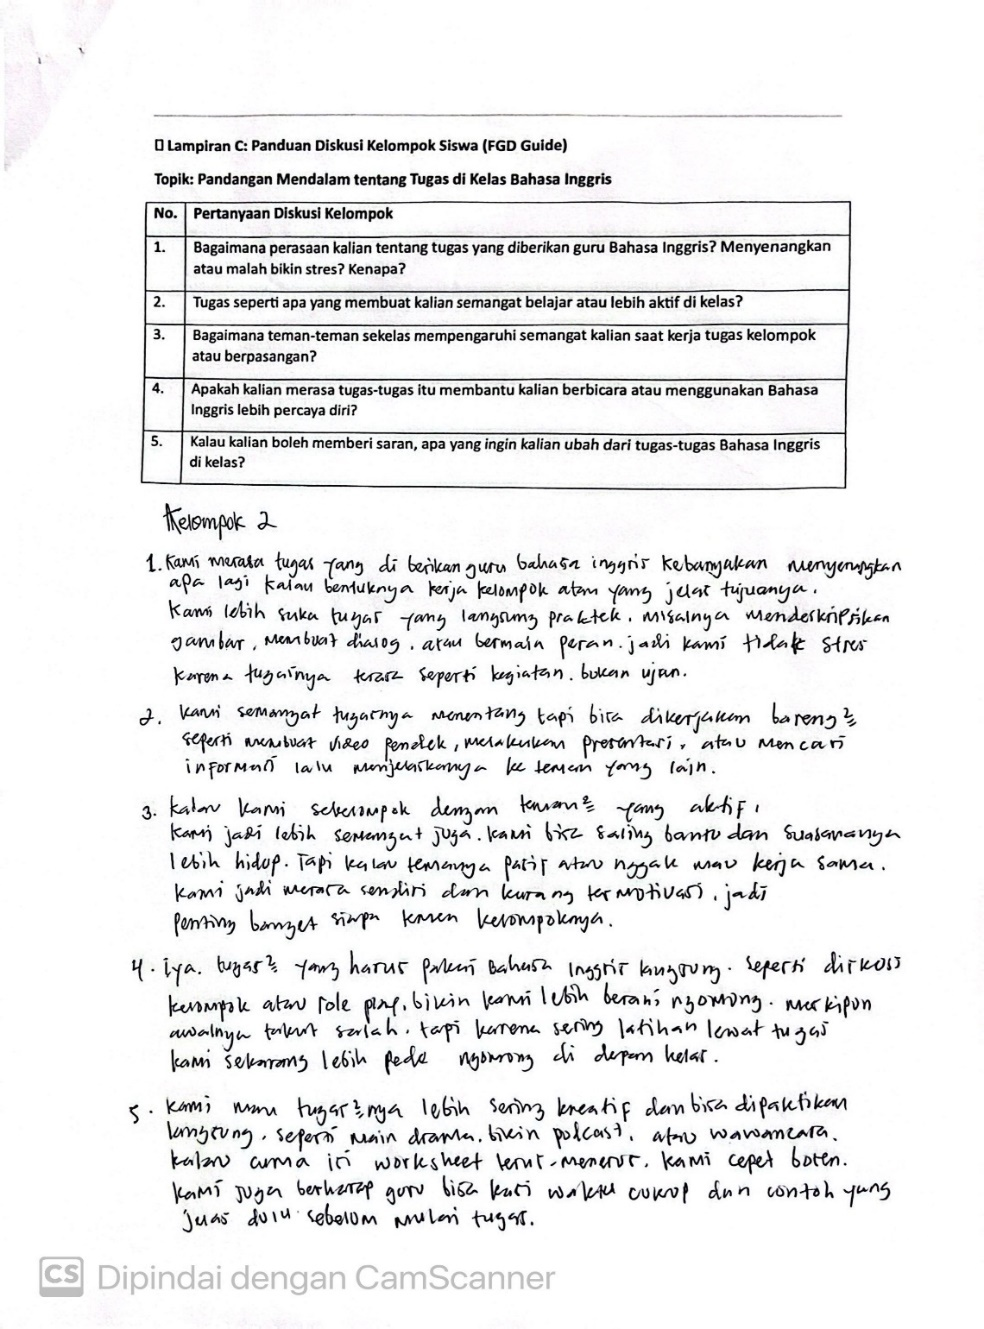 ▯ Lampiran C: Panduan Diskusi Kelompok Siswa (FGD Guide)
Topik: Pandangan Mendalam tentang Tugas di Kelas Bahasa Inggris
No. Pertanyaan Diskusi Kelompok
1. Bagaimana perasaan kalian tentang tugas yang diberikan guru Bahasa Inggris? Menyenangkan
atau malah bikin stres? Kenapa?
2. Tugas seperti apa yang membuat kalian semangat belajar atau lebih aktif di kelas?
3. Bagaimana teman-teman sekelas mempengaruhi semangat kalian saat kerja tugas kelompok
atau berpasangan?
4. Apakah kalian merasa tugas-tugas itu membantu kalian berbicara atau menggunakan Bahasa
Inggris lebih percaya diri?
5. Kalau kalian boleh memberi saran, apa yang ingin kalian ubah dari tugas-tugas Bahasa Inggris
di kelas?
Kelompok 2
1. Kami merasa tugas yang di berikan guru bahasa inggris kebanyakan menyenangkan
apa lagi kalau bentuknya kerja kelompok atau yang jelas tujuanya.
Kami lebih suka tugas yang langsung praktek. misalnya mendeskripsikan
gambar, membuat dialog, atau bermain peran. jadi kami tidak stres
karena tugasnya terasa seperti kegiatan. bukan ujan.
2. kami semangat tugasnya menentang tapi bisa dikerjakan bareng²
seperti membuat video pendek, melakukan presentasi, atau mencari
informasi lalu menjelaskannya ke teman yang lain.
3. kalau kami sekelompok dengan teman² yang aktif,
kami jadi lebih semangat juga. kami bisa saling bantu dan suasananya
lebih hidup. Tapi kalau temannya pasif atau nggak mau kerja sama.
kami jadi merasa sendiri dan kurang termotivasi. jadi
penting banget siapa teman kelompoknya.
4. iya. tugas² yang harus pakai Bahasa Inggris langsung. seperti diskusi
kelompok atau role play, bikin kami lebih berani ngomong. meskipun
awalnya takut salah. tapi karena sering latihan lewat tugas
kami sekarang lebih pede ngomong di depan kelas.
5. kami mau tugas²nya lebih sering kreatif dan bisa dipaktikan
langsung, seperti main drama, bikin polcast, atau wawancara.
kalau cuma isi worksheet terus-menerus, kami cepet bosen.
kami juga berharap guru bisa kasi waktu cukup dan contoh yang
jelas dulu sebelum mulai tugas.
CS Dipindai dengan CamScanner